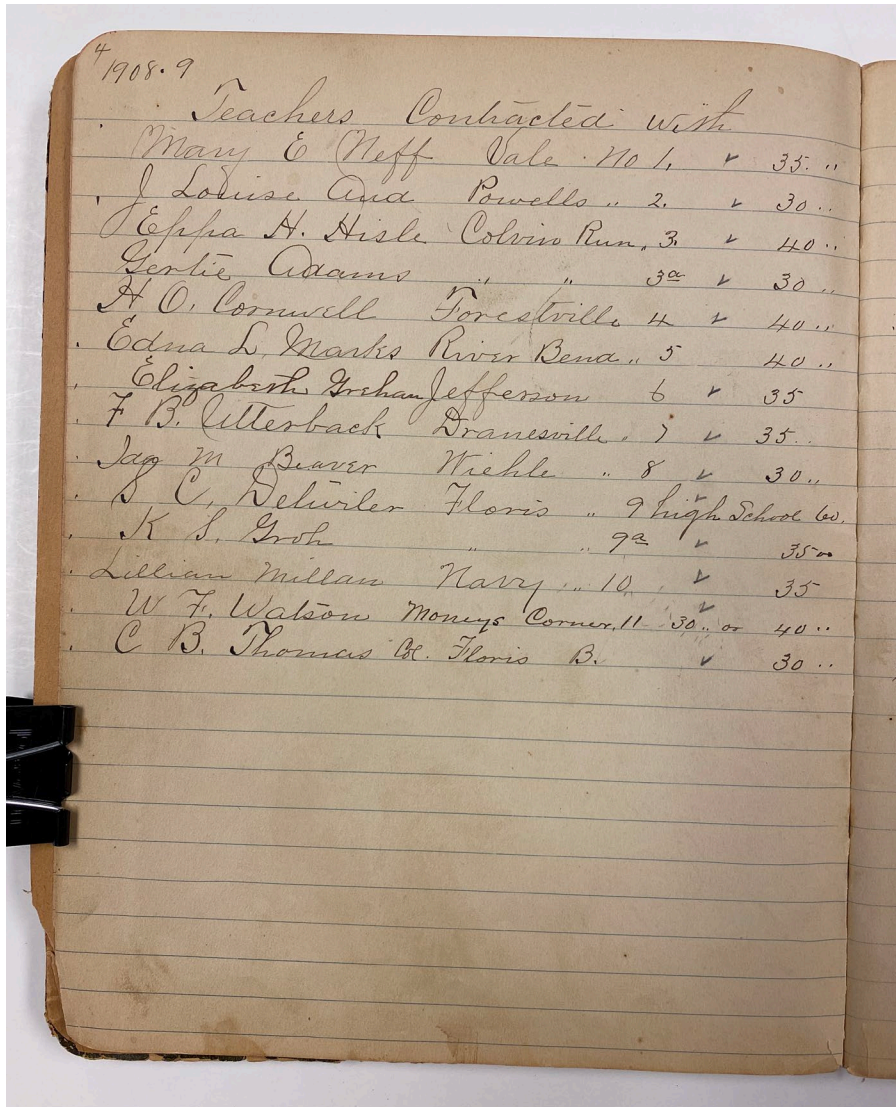 4
1908.9
Teachers Contracted with
Mary E Neff Vale No 1. ✓ 35. "
J Louise Aud Powells " 2. ✓ 30 "
Eppa H. Hisle Colvin Run " 3. ✓ 40 "
Gertie Adams " " 3a ✓ 30 "
H O. Cornwell Forestville 4 ✓ 40 "
Edna L. Marks River Bend " 5 40 "
Elizabeth Grehan Jefferson 6 ✓ 35
F B. Utterback Dranesville " 7 ✓ 35 "
M Beaver Wiehle " 8 ✓ 30 "
S C. Detwiler Floris " 9 ✓ high School 60.
K S. Groh " " 9a ✓ 35 "
Lillian Millan Navy " 10 ✓ 35
W F. Watson Moneys Corner, 11 ✓ 30 " or 40 "
C B. Thomas Col. Floris B. ✓ 30 "